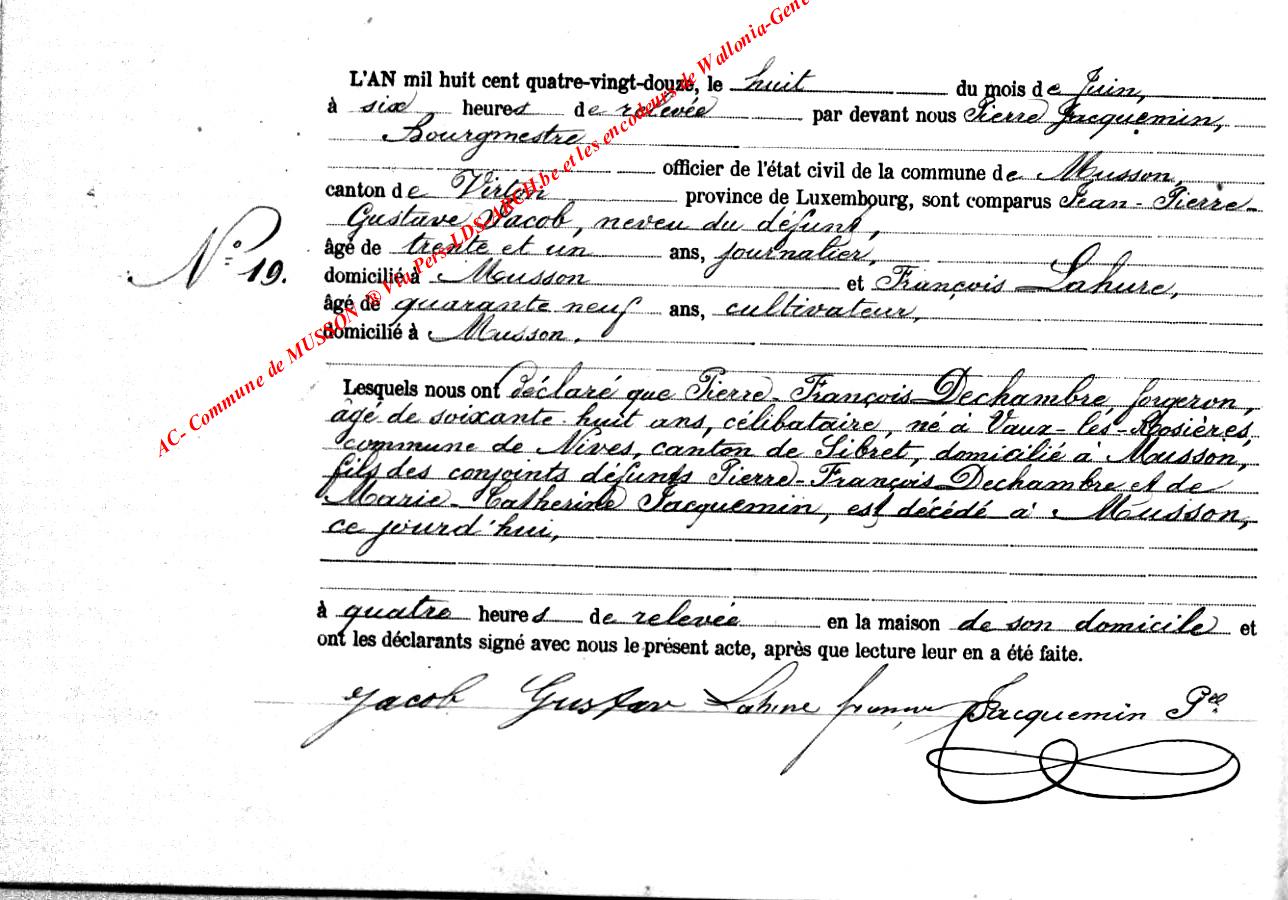 AC- Commune de MUSSON ® Via Perso LDS-ARCH.be et les encodeurs de Wallonia-Gene
L'AN mil huit cent quatre-vingt-douze, le huit du mois de Juin,
à six heures de relevée par devant nous Pierre Jacquemin,
Bourgmestre
officier de l'état civil de la commune de Musson,
canton de Virton province de Luxembourg, sont comparus Jean-Pierre-
Gustave Jacob, neveu du défunt,
âgé de trente et un ans, journalier,
N° 19.
domicilié à Musson et François Lahure,
âgé de quarante neuf ans, cultivateur,
domicilié à Musson.
Lesquels nous ont déclaré que Pierre-François Dechambre, forgeron,
âgé de soixante huit ans, célibataire, né à Vaux-les-Rosières,
commune de Nives, canton de Sibret, domicilié à Musson,
fils des conjoints défunts Pierre-François Dechambre et de
Marie-Catherine Jacquemin, est décédé à Musson,
ce jourd'hui,
à quatre heures de relevée en la maison de son domicile et
ont les déclarants signé avec nous le présent acte, après que lecture leur en a été faite.
Jacob Gustav Lahure Jacquemin Pre